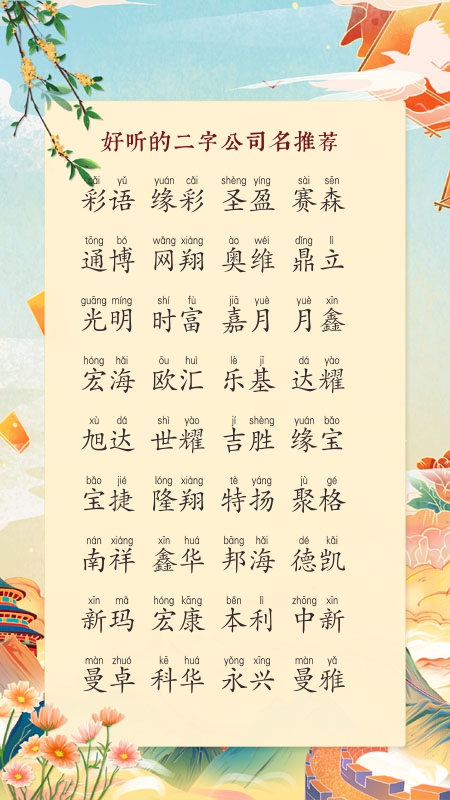 好听的二字公司名推荐
cǎi yǔ yuán cǎi shèng yíng sài sēn
彩语 缘彩 圣盈 赛森
tōng bó wǎng xiáng ào wéi dǐng lì
通博 网翔 奥维 鼎立
guāng míng shí fù jiā yuè yuè xīn
光明 时富 嘉月 月鑫
hóng hǎi ōu huì lè jī dá yào
宏海 欧汇 乐基 达耀
xù dá shì yào jí shèng yuán bǎo
旭达 世耀 吉胜 缘宝
bǎo jié lóng xiáng tè yáng jù gé
宝捷 隆翔 特扬 聚格
nán xiáng xīn huá bāng hǎi dé kǎi
南祥 鑫华 邦海 德凯
xīn mǎ hóng kāng běn lì zhōng xīn
新玛 宏康 本利 中新
màn zhuó kē huá yǒng xīng màn yǎ
曼卓 科华 永兴 曼雅